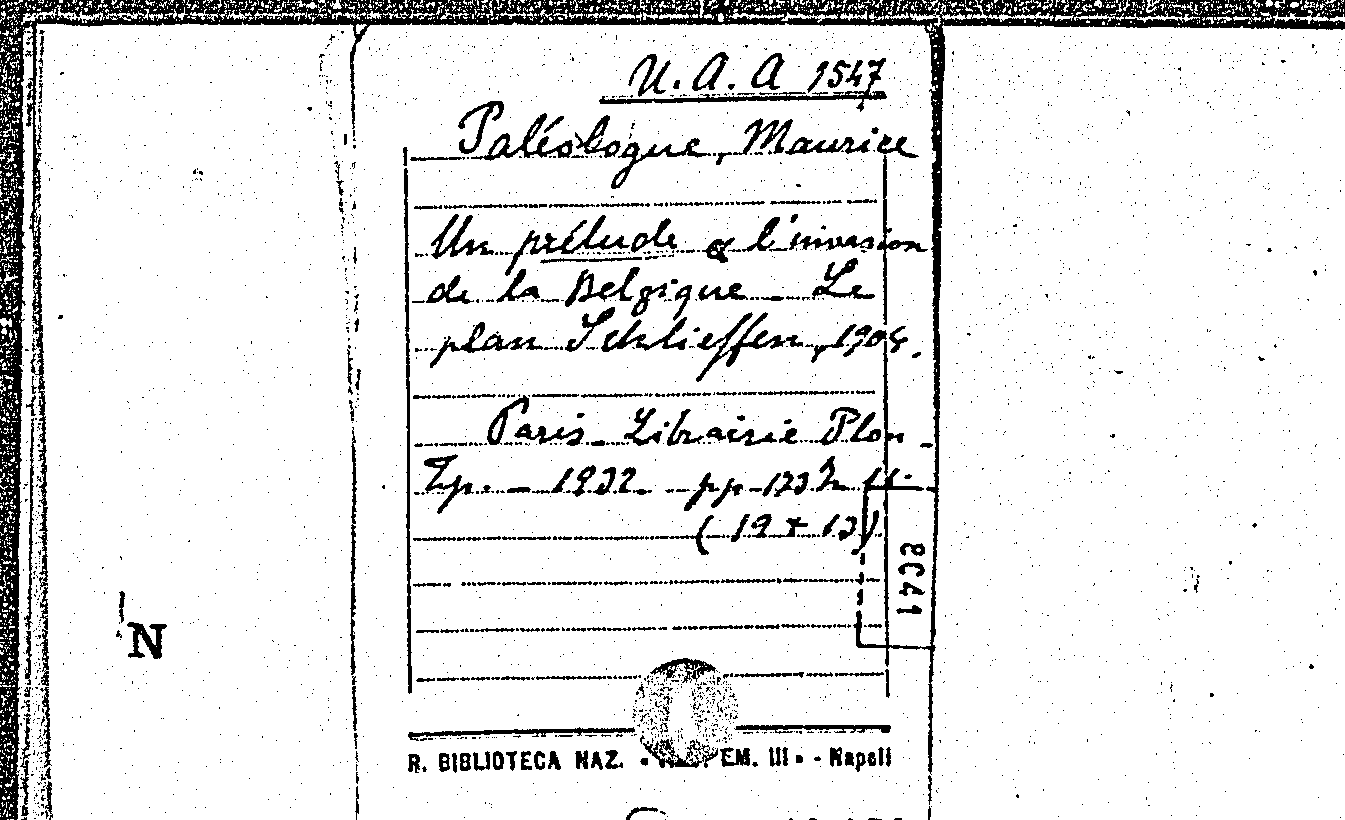 U.A.A 1547
Paléologue, Maurice
Un prélude à l'invasion
de la Belgique - Le
plan Schlieffen, 1904.
Paris - Librairie Plon -
Tip. - 1932 - pp-173
(19 + 13)
8C41
N
R. BIBLIOTECA NAZ. EM. III - Napoli